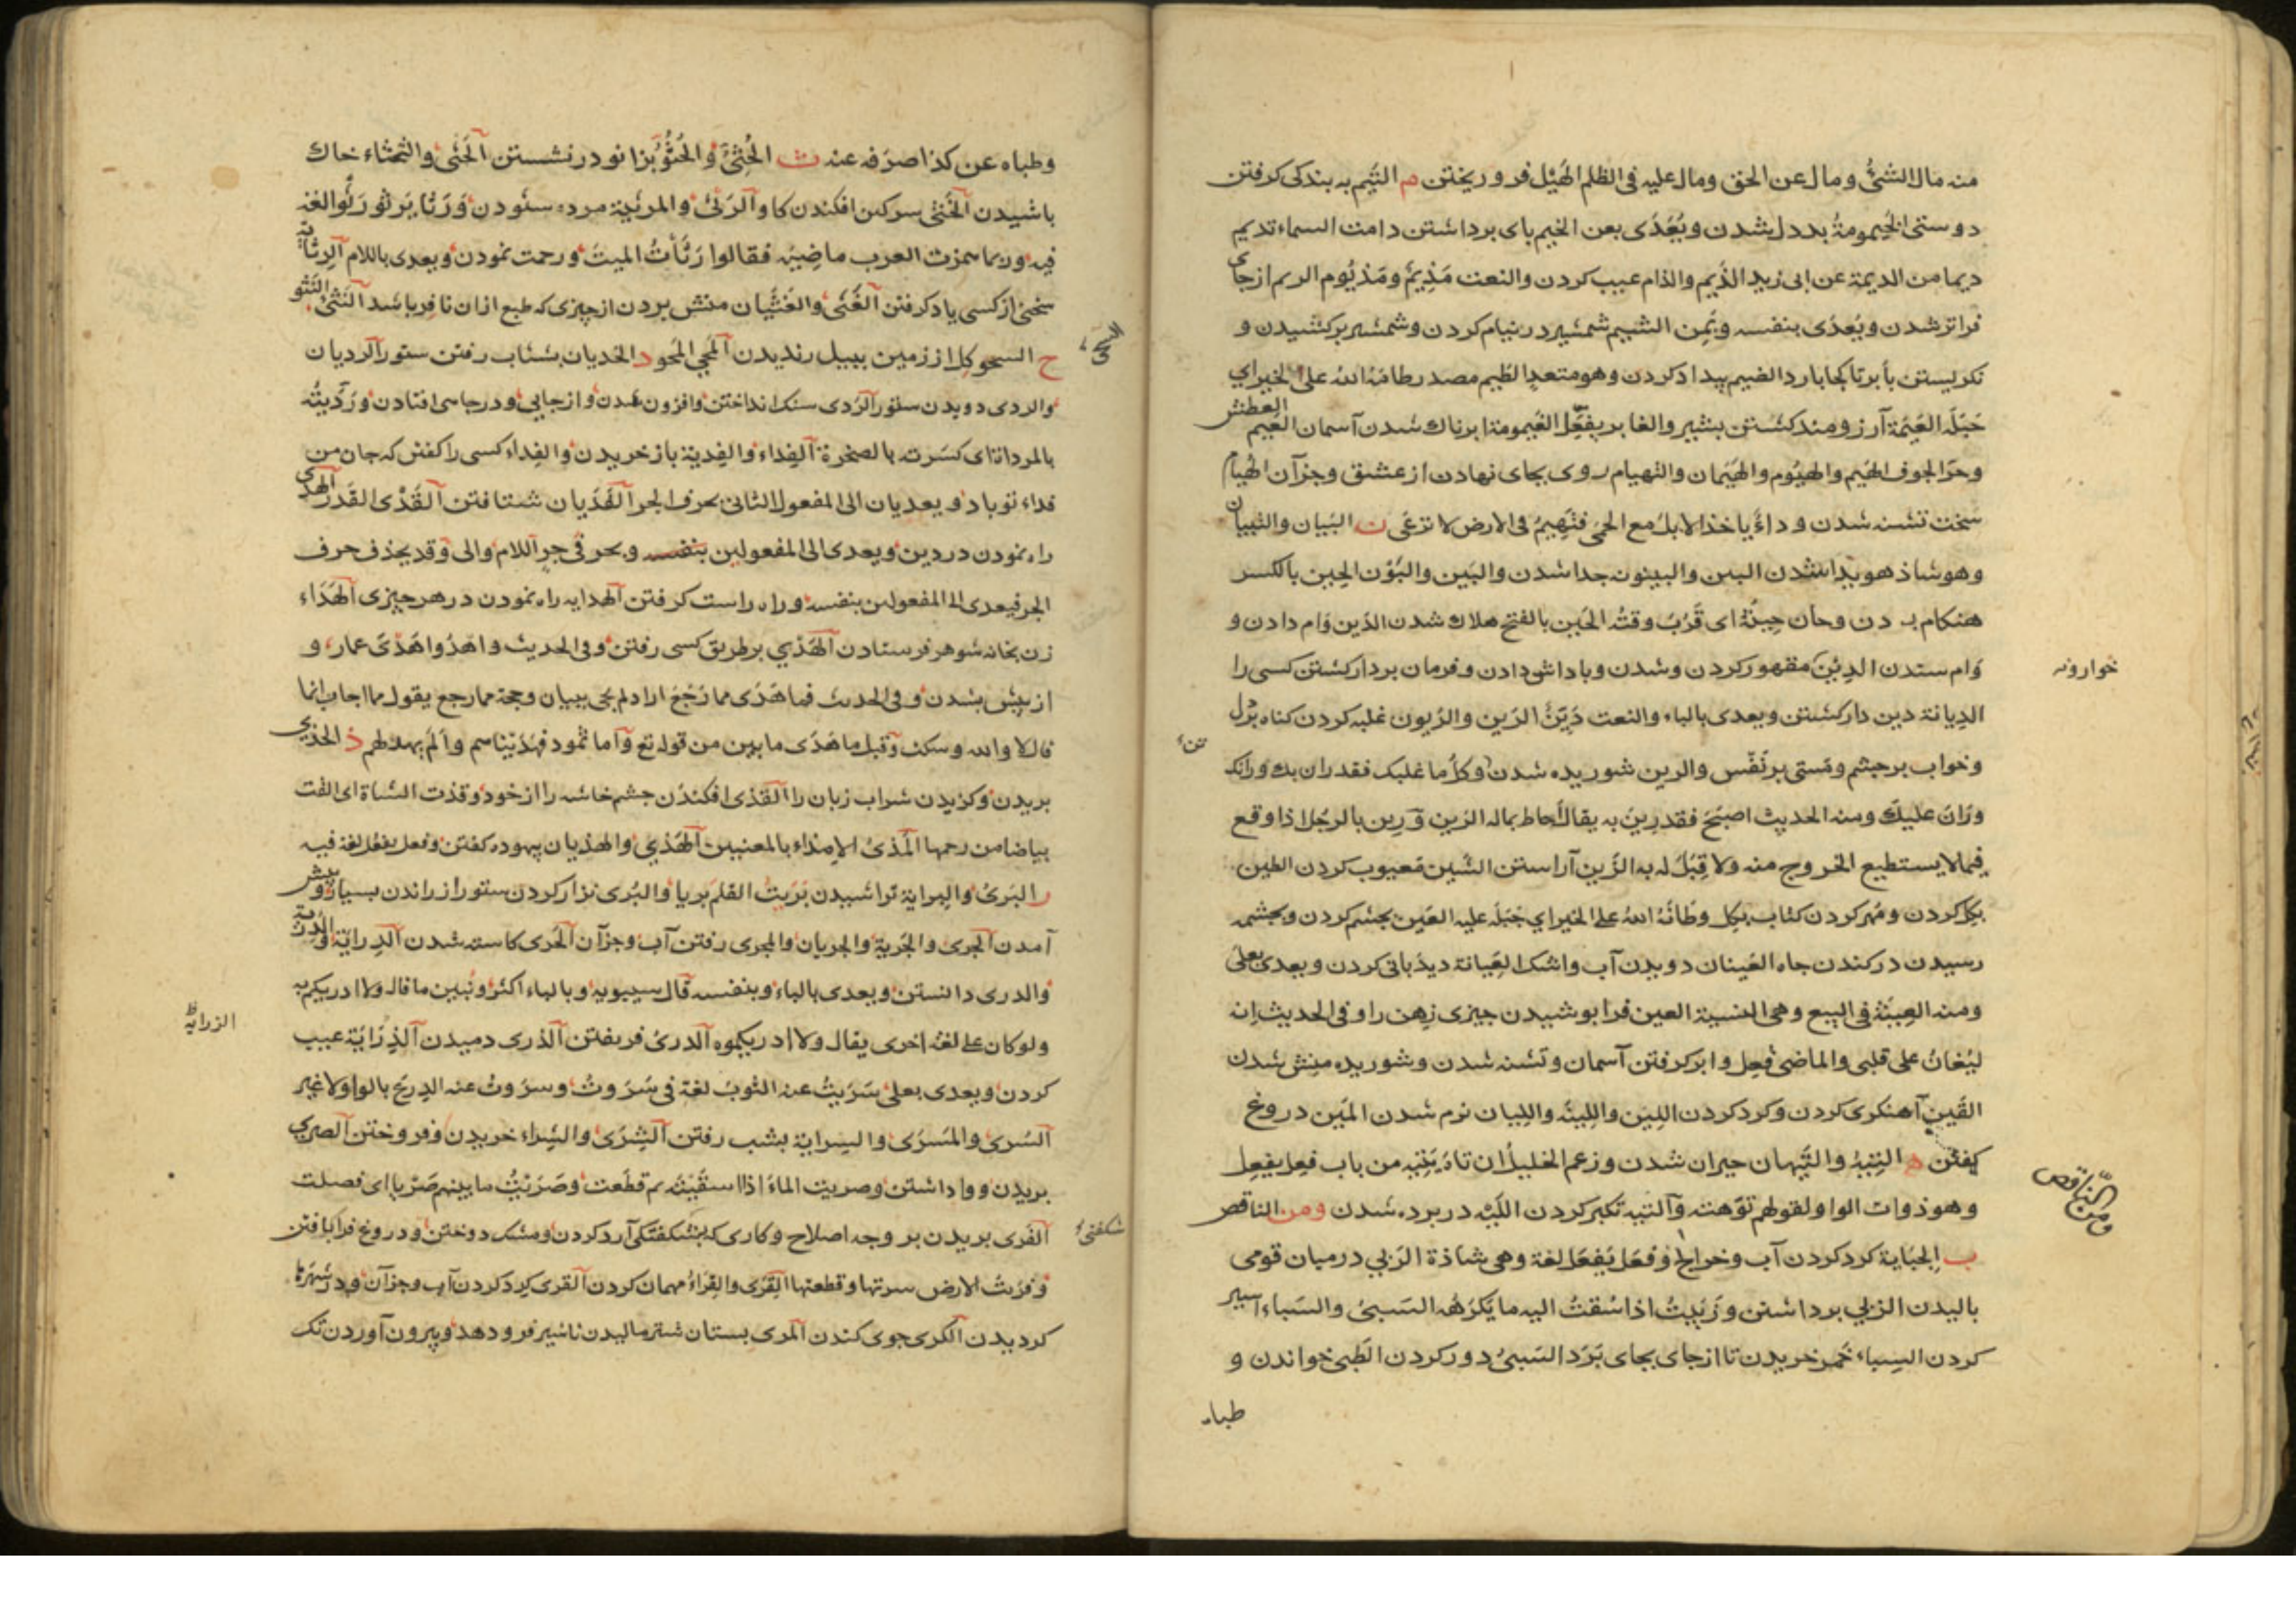 منه مال الشئ ومال عن الحق ومال عليه فى الظلم الهَيْل فرو ريختن م التَيم به بندكى كرفتن
دوستى الخَيمومة بددل شدن ويُعَدّى بعن الخيم باى برداشتن دامت السماء تديم
ديما من الديمة عن ابى زيد الذَيم والذام عيب كردن والنعت مَذِيمٌ ومَذيُوم الريم از جاى
فراتر شدن ويُعدّى بنفسه وبمِن الشيم شمشير در نيام كردن وشمشير بركشيدن و
نكريستن بأبرتا كجا بارد الضيم بيداد كردن وهو متعدٍ الطَيم مصدر طامَهُ الله على الخير اى
جَبَلَه العَيمَة آرزومند كشتن بشير والغابر يفعَل الغَيمومة ابرناك شدن آسمان الغَيم العطش
وحرّ الجوف الهَيم والهيُوم والهَيَمان والتهيام روى بجاى نهادن از عشق وجز آن الهُيام
سخت تشنه شدن وداءٌ ياخذ الابل مع الحمى فتَهِيمُ فى الارض لا ترعَى ن البَيان والتِبيان
وهو شاذ هويدا شدن البين والبينونه جدا شدن والبَين والبَوْن الحِين بالكسر
هنكام بودن وحان حِينُهُ اى قَرُبَ وقتُه الحَين بالفتح هلاك شدن الدَين وَام دادن و
وَام ستدن الدِينَ مقهور كردن وشدن وباداش دادن وفرمان بردار كشتن كسى را
الدِيانة دين دار كشتن ويعدى بالباء والنعت دَيِّنٌ الرَين والرُيون غلبه كردن كناه بردل
وخواب بر چشم ومَستى بر نَفْس والرين شوريده شدن وكلُّ ما غلبك فقد ران بك ورانك
ورَانَ عليك ومنه الحديث اصبَحَ فقد رِينَ به يقال احاط بماله الرَين وَرِين بالرجُل اذا وقع
فيما لا يستطيع الخروج منه ولا قِبَلَ له به الزَين آراستن الشَين مَعيوب كردن الطين
بكل كردن ومُهر كردن كتاب بكل وطَانَهُ اللهُ على الخير اي جَبَلَه عليه العَين بچشم كردن وبچشمه
رسيدن در كندن چاه العَينان دويدن آب واشك العِيانة ديذبانى كردن ويعدى بعلى
ومنه العِينَة فى البيع وهى النسيئة الغين فرا بوشيدن چيزى ذهن را وفى الحديث انه
ليُغانُ على قلبى والماضى فُعِل وابر كرفتن آسمان وتشنه شدن وشوريده منِش شدن
القَين آهنكرى كردن وكرد كردن اللِين واللِينَة واللِيان نرم شدن المَين دروغ
كفتن ه التِيهُ والتَيَهان حيران شدن وزعم الخليل أن تاه يَتيه من باب فعِل يفعِل
وهو ذوات الواو لقولهم توّهته وَالتيه تكبر كردن اللَيْه در برده شدن ومن الناقص
ب الجبَاية كرد كردن آب وخراج وفعَل يَفعَل لغة وهى شاذة الرَبي درميان قومى
باليدن الزبي برداشتن وزَبَيتُ اذا سُقتُ اليه ما يَكرَهُه السَبىُ والسَباء اسير
كردن السِباء خَمر خريدن تا از جاى بجاى بَرَد السَبىُ دور كردن الطَبى خواندن و
طباه
خوارونه
ومن الناقص
وطباه عن كذا صرَفه عنه ث الجُثِىُّ والجُثُوُّ بزانو درنشستن الحَثى والتحثاء خاك
باشيدن الخَثىُ سركين افكندن كاو الرَثىُ والمرثية مرده ستودن وَرَثَا يَرثو رَثْوا لغة
فيه وربما همزت العرب ماضِيَه فقالوا رَثَأتُ الميتَ ورحمت نمودن ويعدى باللام الرِثاية
سخنى از كسى ياد كرفتن الغَثى والغَثَيان منش بردن از چيزى كه طبع ازان نافر باشد النَثىُ النَثْو
ح السحو كل از زمين ببيل رنديدن المَحي المَحو د الخديان بشتاب رفتن ستور الرديان
والردى دويدن ستور الرَدى سنك انداختن وافزون شدن واز جايى ودر چاهى افتادن ورَدَيتُه
بالمرداة اى كسَرته بالصخرة الفِداء والفِدية باز خريدن والفِداء كسى را كفتن كه جان من
فداء تو باد ويعديان الى المفعول الثانى بحرف الجر القَدَيان شتافتن القَدْى القَدر الهدى
راه نمودن در دين ويعدى الى المفعولين بنفسه وبحرفى جر اللام والى وقد يحذف حرف
الجر فيعدى الى المفعولين بنفسه وراه راست كرفتن الهدايه راه نمودن در هر چيزى الهَدَاء
زن بخانه شوهر فرستادن الهَدْي بر طريق كسى رفتن وفى الحديث واهدُوا هَدْىَ عمار و
از پيش بشدن وفى الحديث فما هَدَى مما رَجَعَ اراد لم يجى ببيان وحجة مما رجع يقول مما اجاب انما
قال لا والله وسكت وقيل ما هَدَى ما بين من قوله تع وَاما ثمود فهَدَيْناهم واَلَم يهد لهم ذ الحذي
بريدن وكزيدن شراب زبان را القَذى افكندن چشم خاشه را از خود وقذت الشاة اى القت
بياضا من رحمها المَذىُ الامذاء بالمعنيين الهَذي والهذيان بيهوده كفتن وفعل يفعُل لغة فيه
ر البَرىُ والبِراية تراشيدن بَرَيتُ القلم بريا والبُرى نزار كردن ستور از راندن بسيار و پيش
آمدن الجرى والجَرية والجريان والمجرى رفتن آب وجز آن الحَرى كاسته شدن الدِراية والدُرية
والدرى دانستن ويعدى بالباء وبنفسه قال سيبويه وبالباء اكثر ونبين ما قال ولا ادريكم به
ولو كان على لغة اخرى يقال ولا ادريكموه الدرىُ فريفتن الذرى دميدن الذِرَايَة عيب
كردن ويعدى بعلى سَرَيتُ عنه الثوبَ لغة فى سَرَوتُ وسرَوتُ عنه الدِرعَ بالواو لا غير
السُرى والمَسرَى والسِراية بشب رفتن الشِرَى والشِراء خريدن وفروختن الصري
بريدن ووا داشتن وصريت الماءَ اذا اسقَيْتَه ثم قطَعت وصَرَيْتُ ما بينهم صَرْيا اى فصلت
الفَرى بريدن بر وجه اصلاح وكارى كه بشكفتكى آرد كردن ومشك دوختن ودروغ فرابافتن
وفرَيتُ الارض سرتها وقطعتها القِرَى والقِراءُ مهمان كردن القرى كرد كردن آب وجز آن ودر شهرها
كرديدن الكرى جوى كندن المَرى بستان شتر ماليدن تا شير فرو دهد وبيرون آوردن تك
الزراية ظ